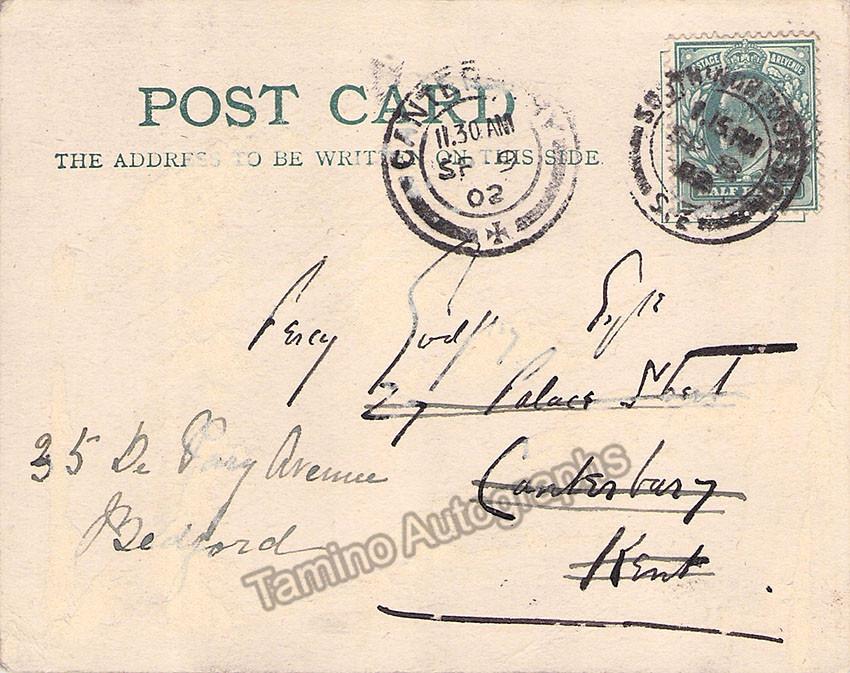 POST CARD
THE ADDRESS TO BE WRITTEN ON THIS SIDE.
CANTERBURY
11.30 AM
SP 9
02
POSTAGE & REVENUE
HALF PENNY
S.O.
.15 PM
Percy Godfrey Esqre
27 Palace Street
Canterbury
Kent
35 De Parry Avenue
Bedford
Tamino Autographs